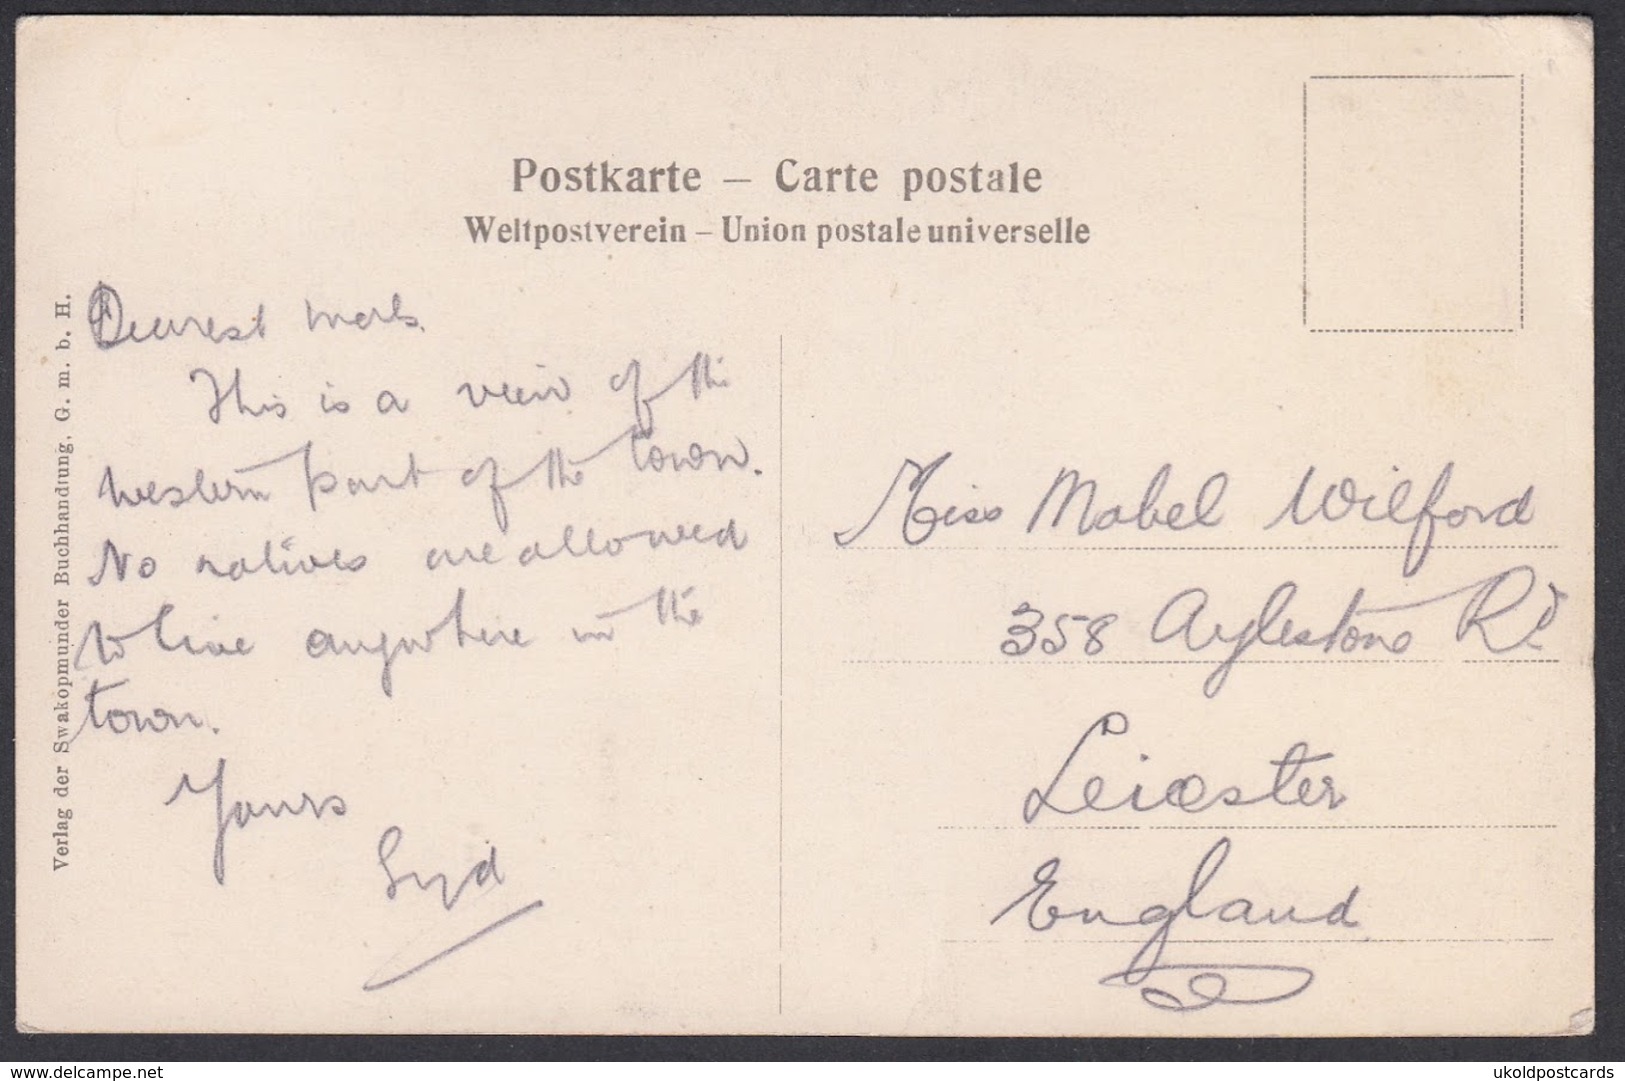 Postkarte – Carte postale
Weltpostverein – Union postale universelle
Verlag der Swakopmunder Buchhandlung, G. m. b. H.
Dearest Mab.
This is a view of the
western part of the town.
No natives are allowed
to live anywhere in the
town.
Yours
Syd
Miss Mabel Wilford
358 Aylestone Rd
Leicester
England
www.delcampe.net
ukoldpostcards